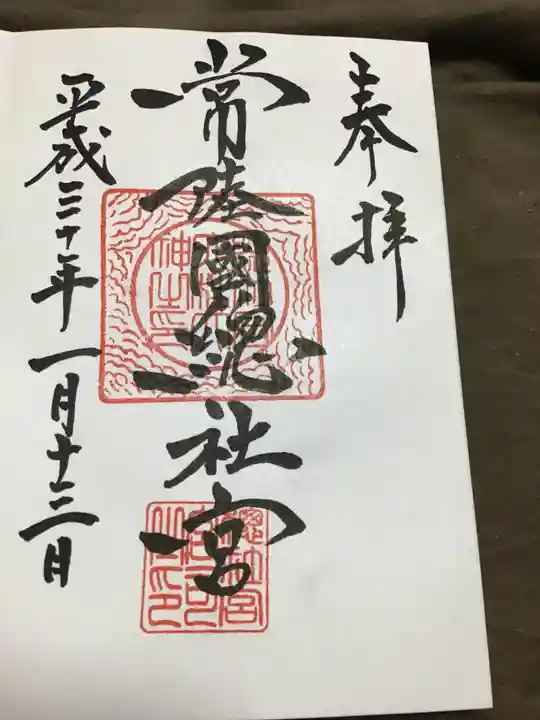 奉拝
常陸國總社宮
平成三十年一月十三日